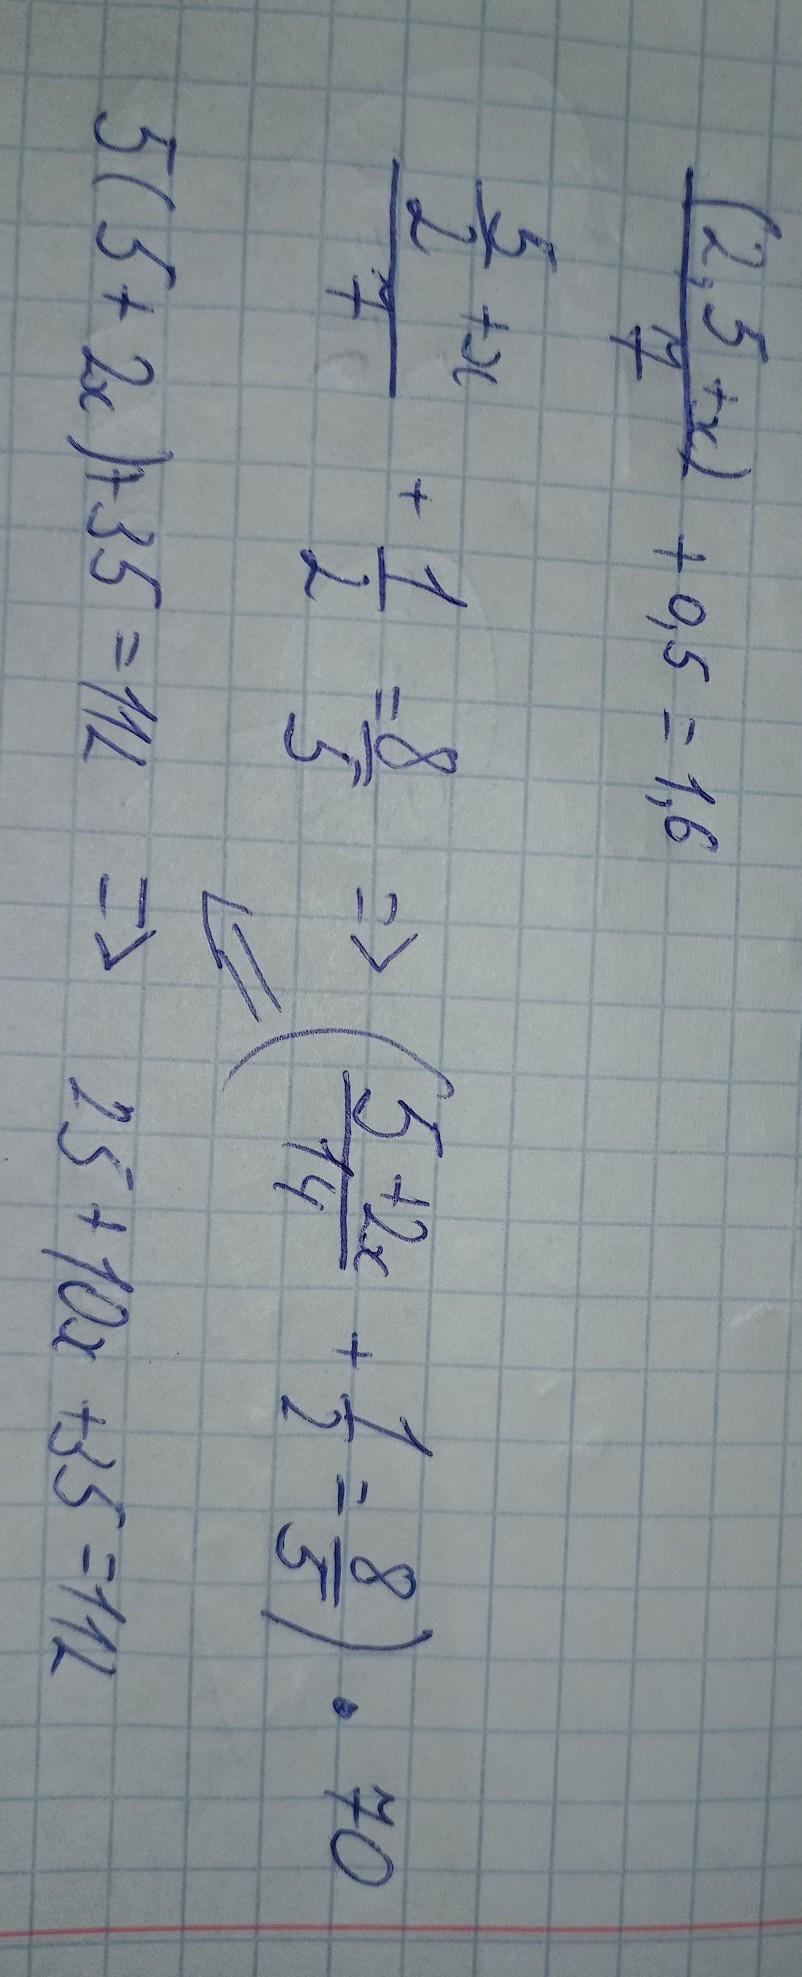 (2,5+x)/7 + 0,5 = 1,6
(5/2 + x)/7 + 1/2 = 8/5 => ((5+2x)/14 + 1/2 = 8/5) · 70
<=
5(5+2x)+35=112 => 25+10x+35=112